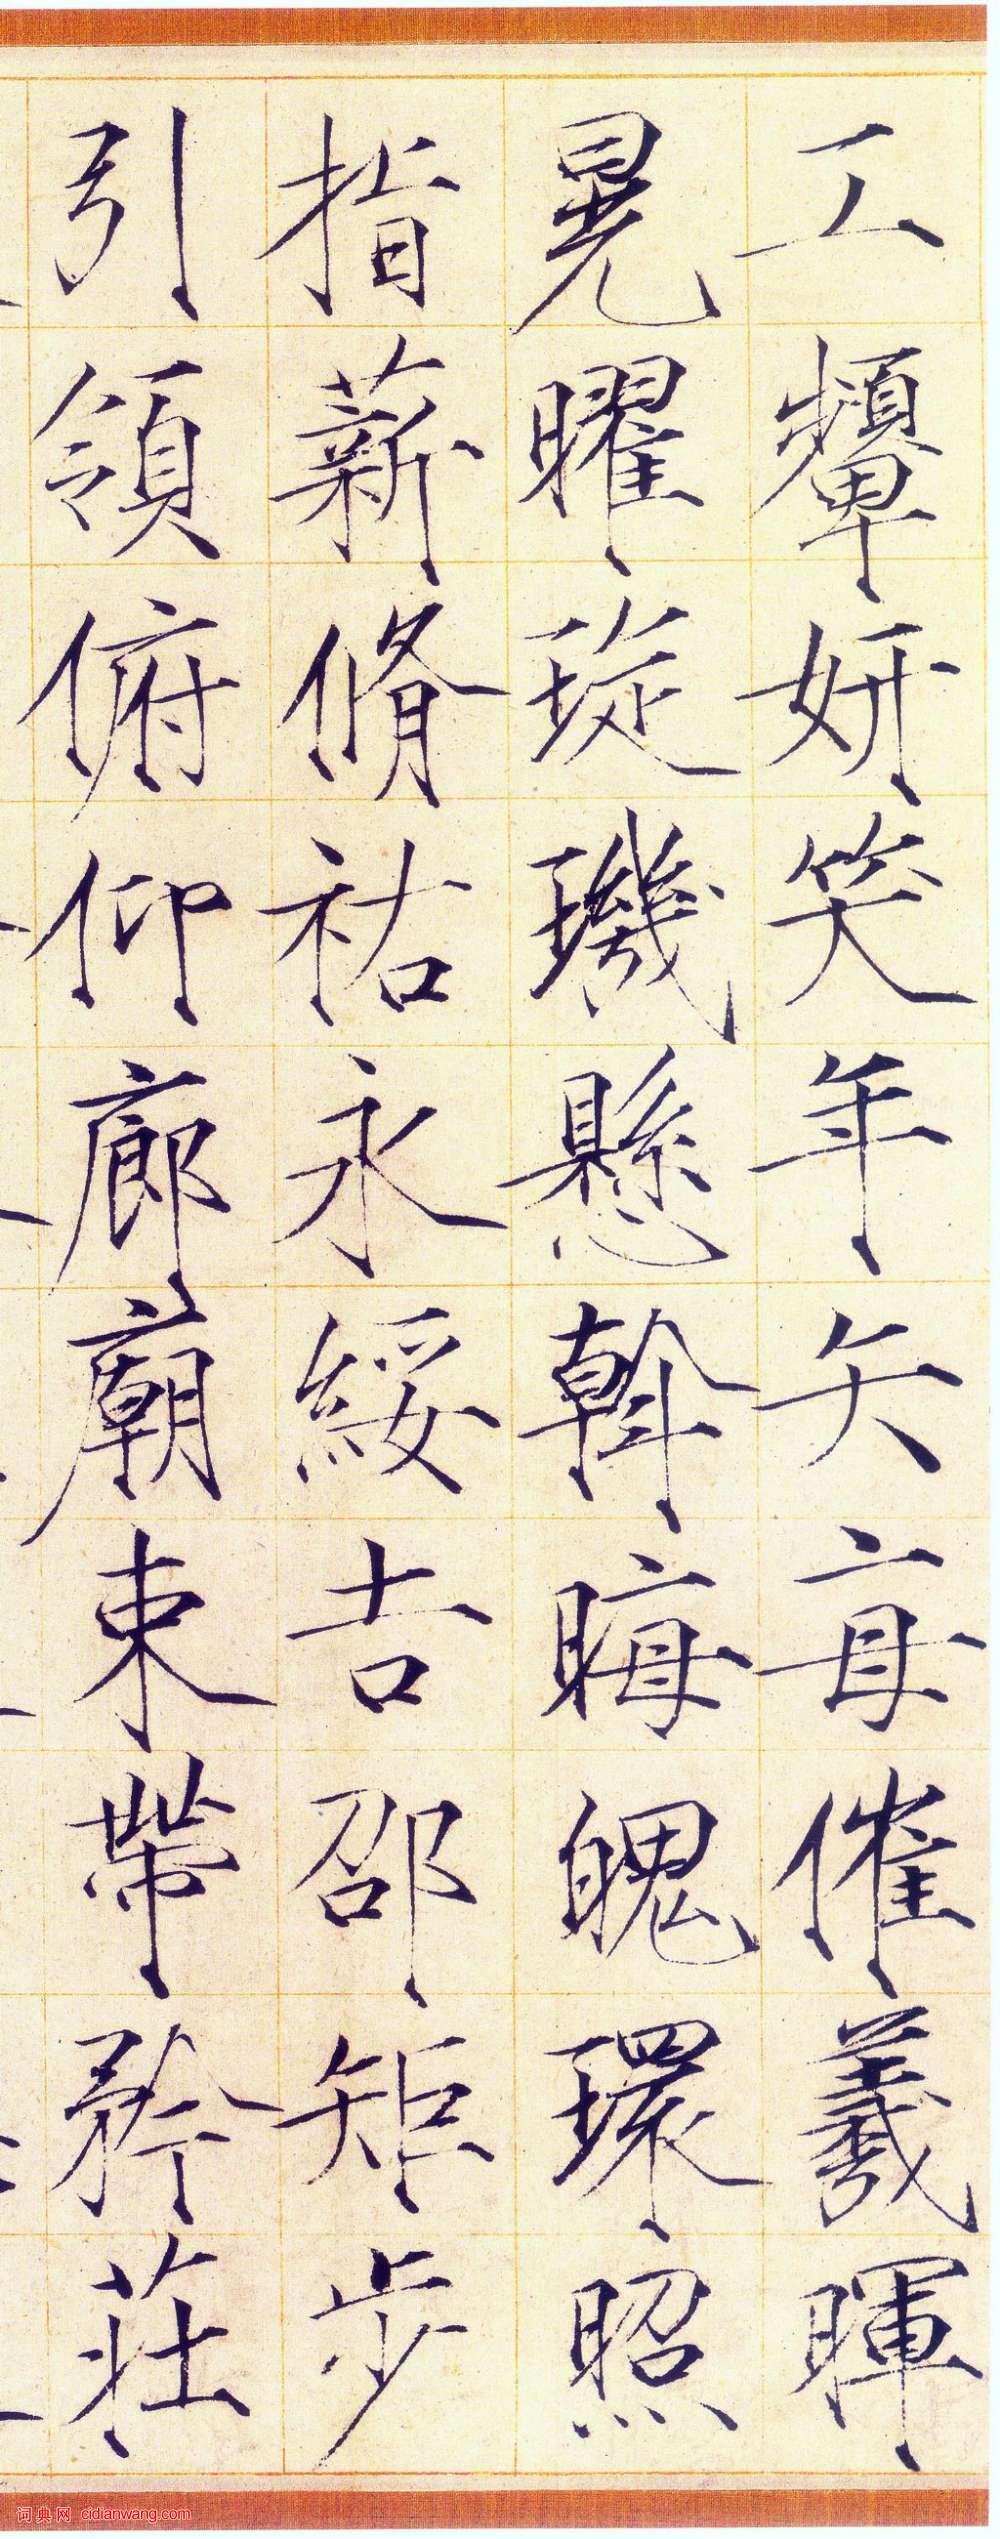 工顰妍笑年矢每催羲暉
晃曜琁璣懸斡晦魄環照
指薪脩祐永綏吉邵矩步
引領俯仰廊廟束帶矜莊
词典网 cidianwang.com